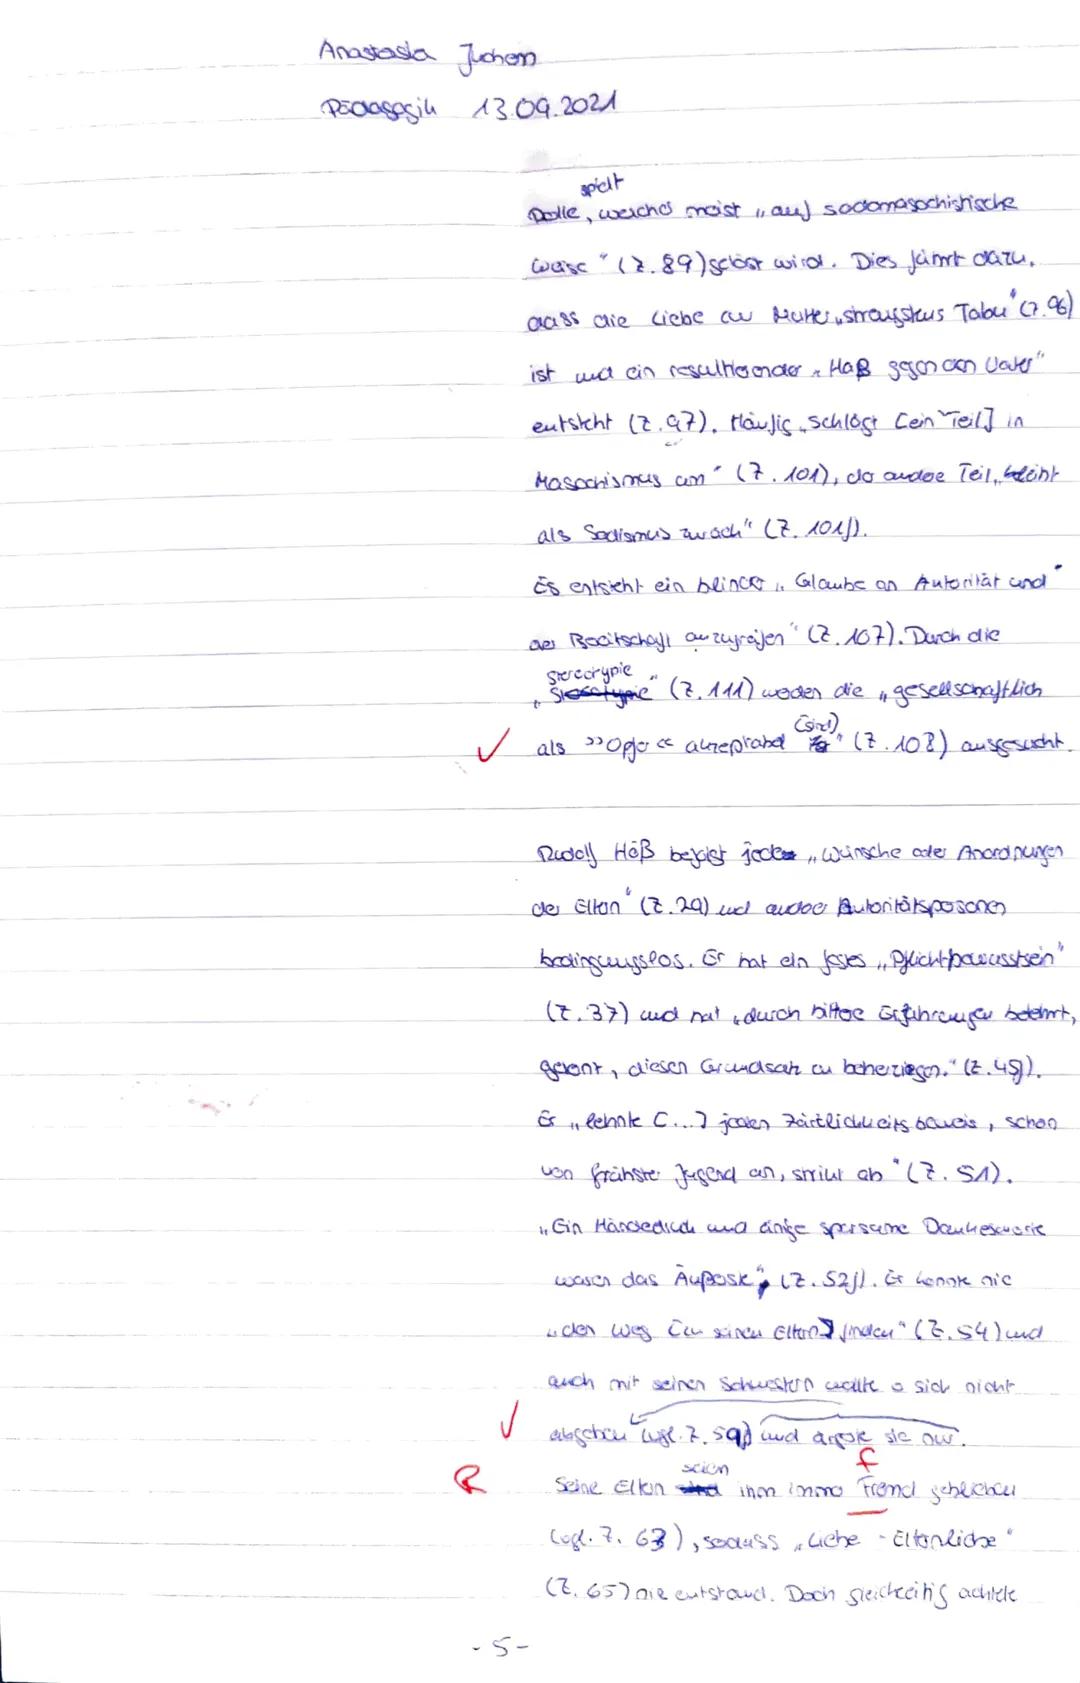 Anastasia Juchem
Pädagogik 13.09.2021
spielt
Rolle, welches meist „auf sadomasochistische
Weise" (Z. 89) gelöst wird. Dies führt dazu,
dass die Liebe zur Mutter „strengstens Tabu" (Z. 96)
ist und ein resultierender „Haß gegen den Vater"
entsteht (Z. 97). Häufig „schlägt [ein Teil] in
Masochismus um" (Z. 101), der andere Teil „bleibt
als Sadismus zurück" (Z. 101f).
Es entsteht ein blinder „Glaube an Autorität und"
der Bereitschaft anzugreifen" (Z. 107). Durch die
Stereotypie
„" (Z. 111) werden die „gesellschaftlich
(sind)
als >>Opfer<< akzeptabel" (Z. 108) ausgesucht.
Rudolf Höß befolgt jede „Wünsche oder Anordnungen
der Eltern" (Z. 29) und anderer Autoritätspersonen
bedingungslos. Er hat ein festes „Pflichtbewusstsein"
(Z. 37) und hat „durch bittere Erfahrungen belehrt,
gelernt, diesen Grundsatz zu beherzigen." (Z. 45f).
Er „lehnte [...] jeden Zärtlichkeitsbeweis, schon
von frühster Jugend an, strikt ab" (Z. 51).
„Ein Händedruck und einige sparsame Dankesworte
waren das Äußerste", (Z. 52f). Er konnte nie
„den Weg [zu seinen Eltern] finden" (Z. 54) und
auch mit seinen Schwestern wollte er sich nicht
abgeben (vgl. Z. 59f) und ärgerte sie nur.
f
seien
R Seine Eltern ihm immer Fremd geblieben
(vgl. Z. 63), sodass „Liebe - Elternliebe"
(Z. 65) nie entstand. Doch gleichzeitig achtete
- 5 -